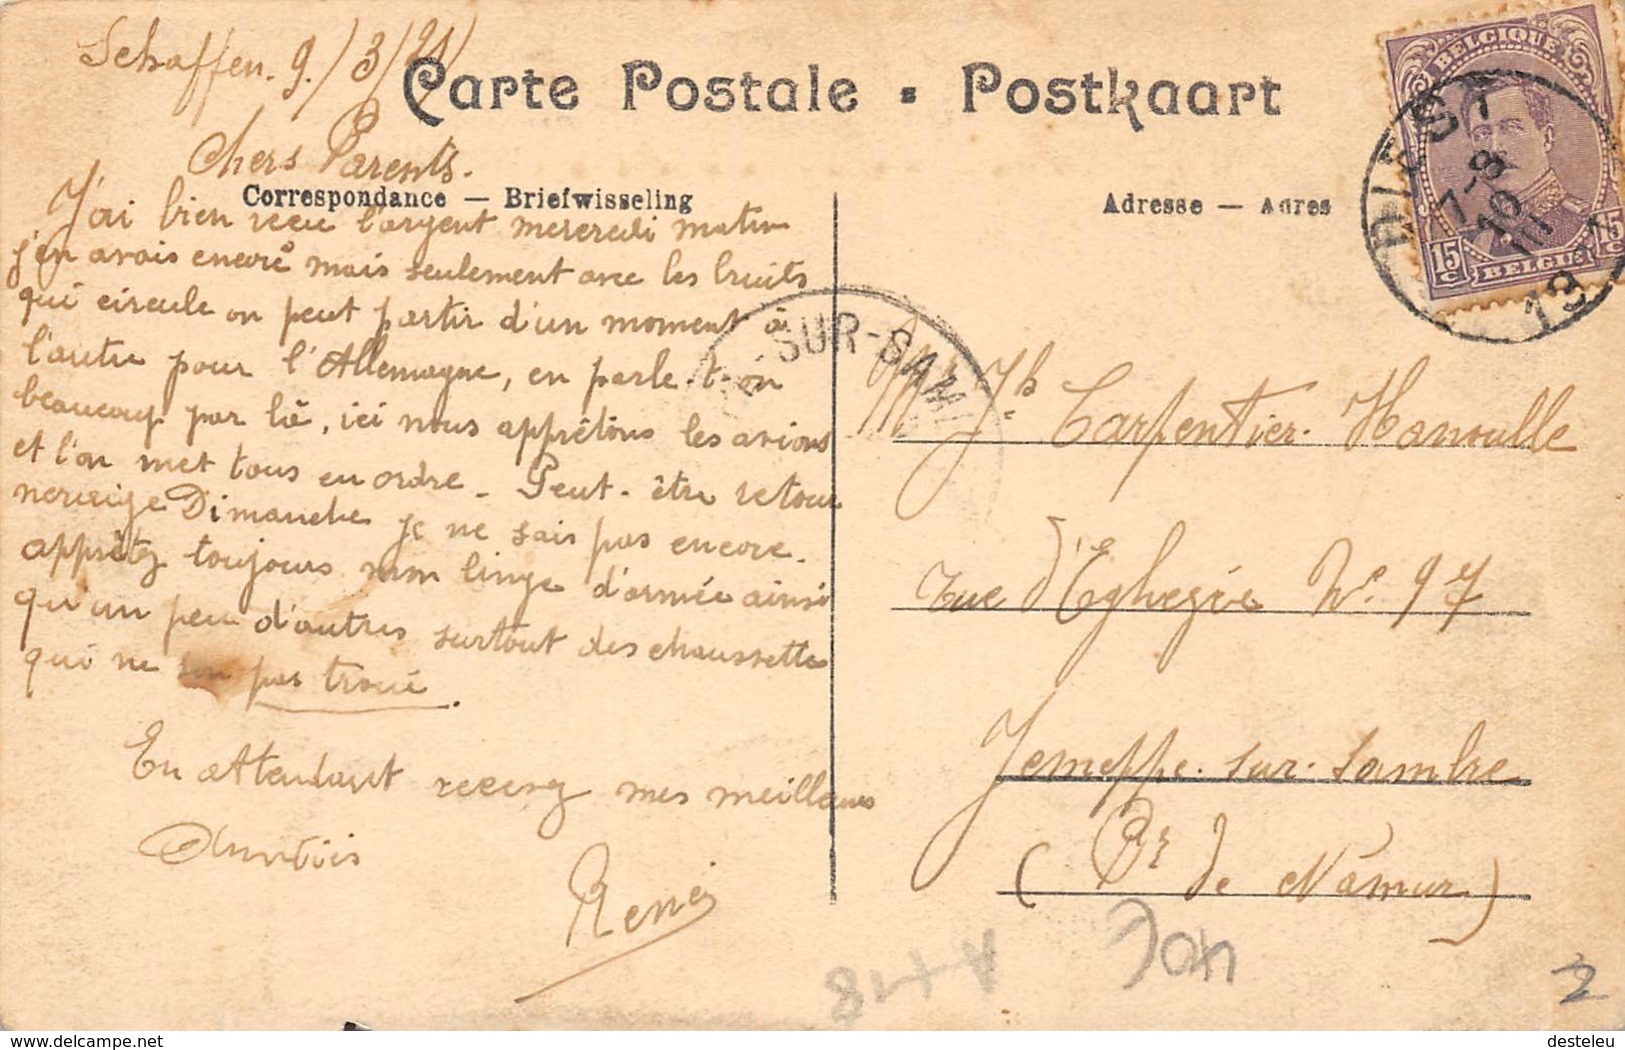 Schaffen. 9./3/21
Carte Postale - Postkaart
Chers Parents.
Correspondance — Briefwisseling
Adresse — Adres
J'ai bien recu l'argent mercredi matin
j'en avais encore mais seulement avec les bruits
qui circule on peut partir d'un moment à
l'autre pour l'Allemagne, en parle-t-on
beaucoup par là, ici nous apprêtons les avions
et l'on met tous en ordre. Peut-être retour
Dimanche je ne sais pas encore.
apprêtez toujours mon linge d'armée ainsi
qu'un peu d'autres surtout des chaussette
qui ne son pas troué.
En attendant recevez mes meilleurs
René
BELGIQUE
15 C
15 C
BELGIE
DIEST
7-8
10
III
13
SUR-SAM
Jh Carpentier-Hanoulle
rue d'Eghezée No 97
Jemeppe-sur-Sambre
(Pr de Namur)
2
www.delcampe.net
desteleu